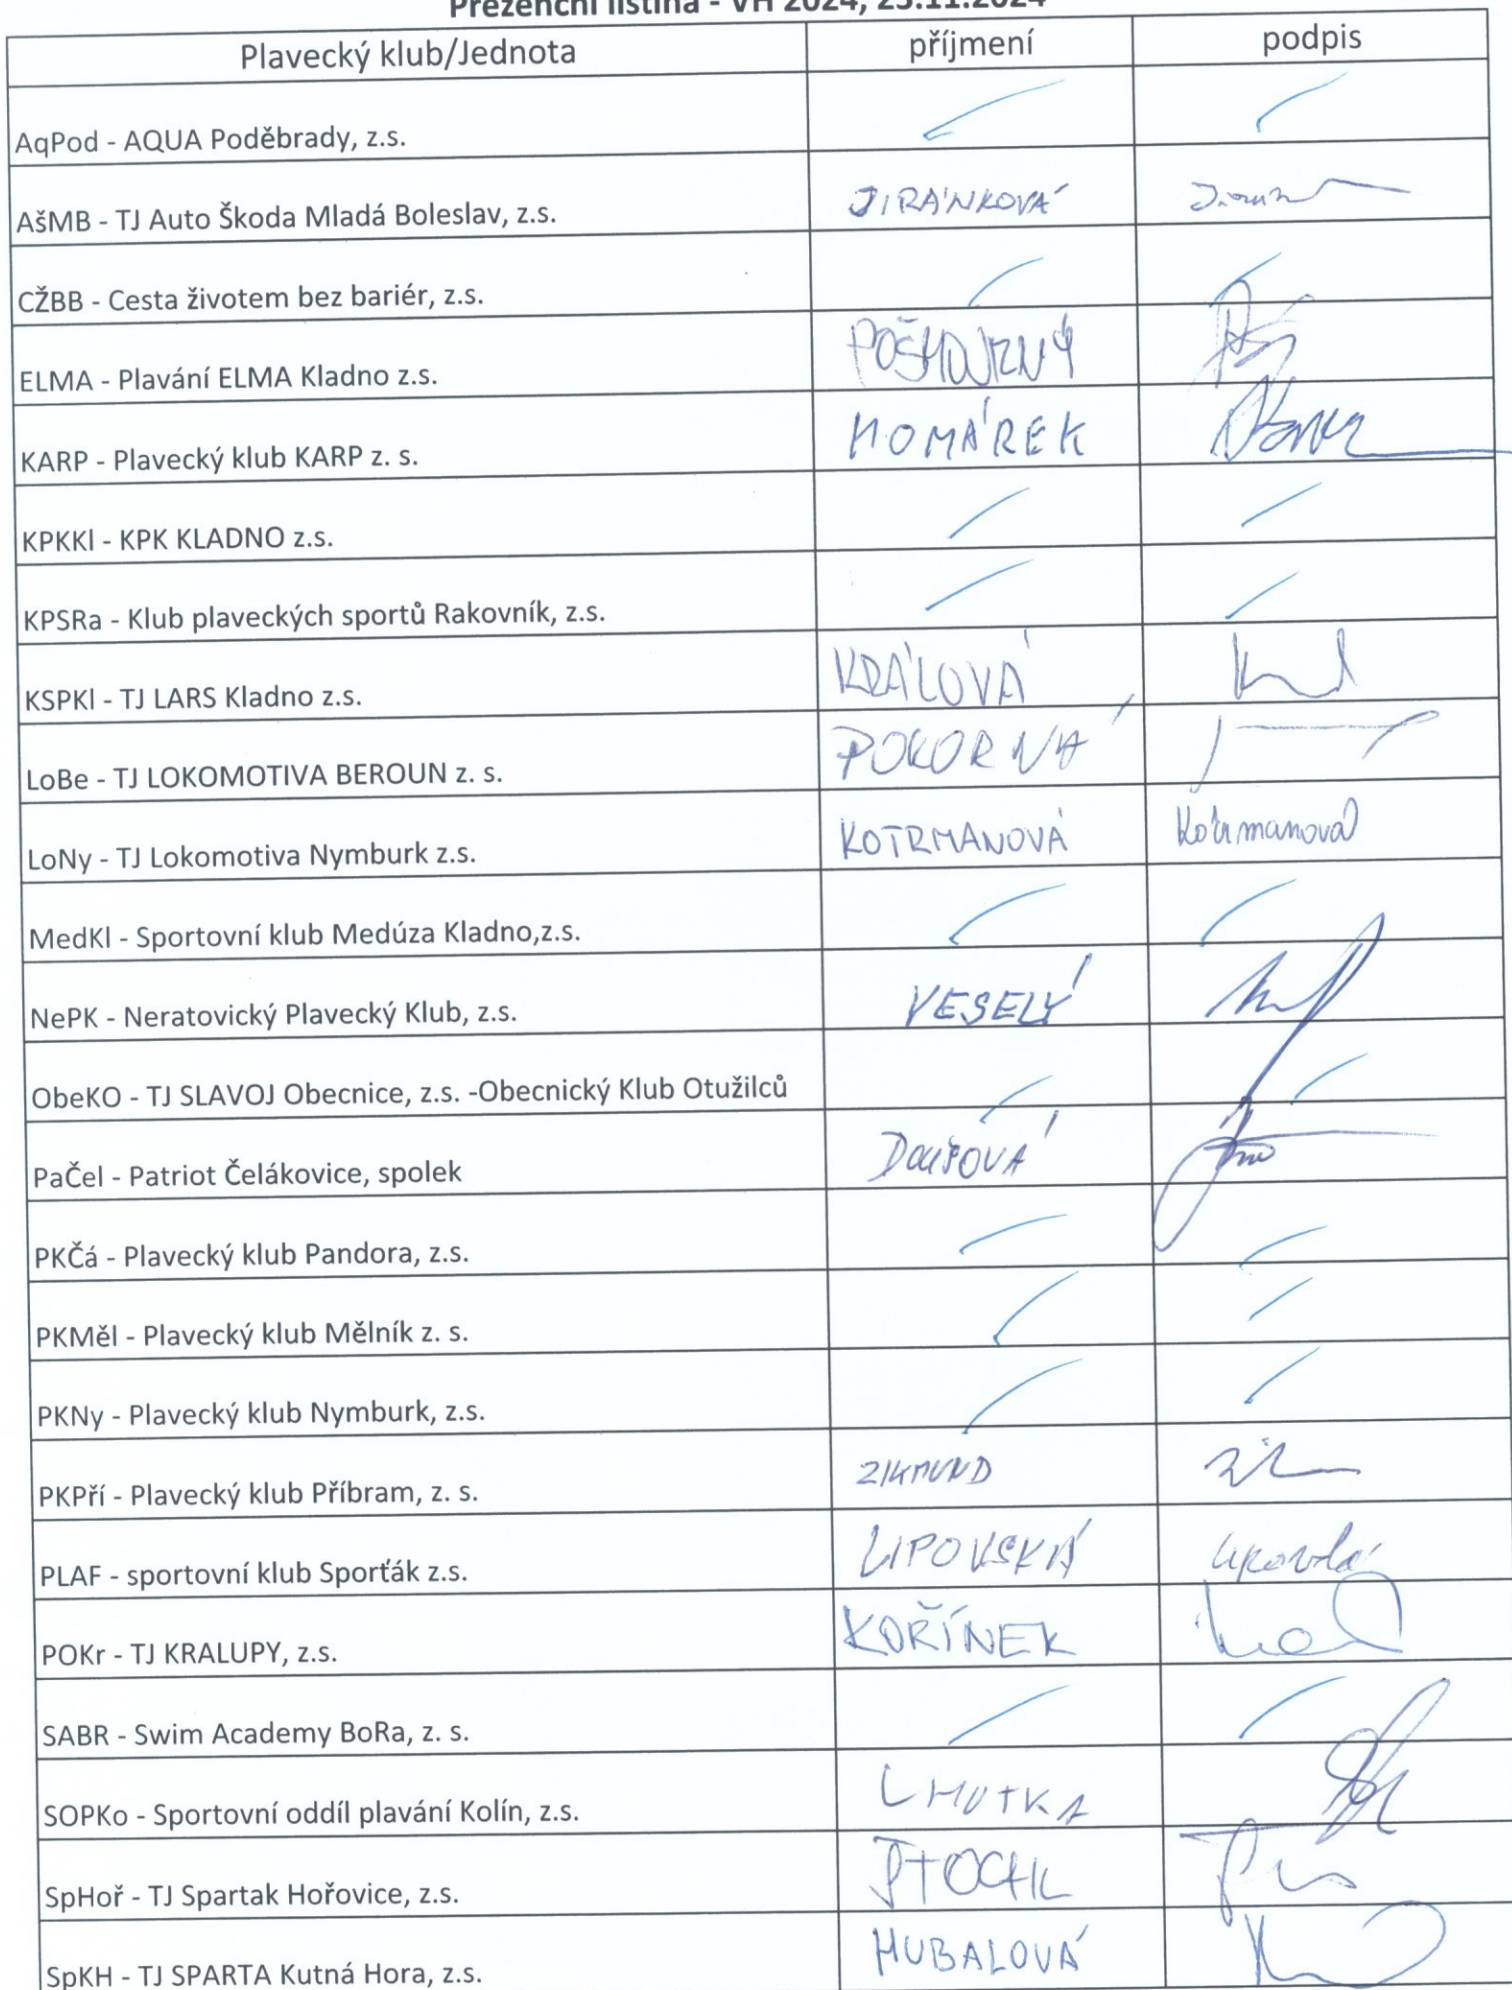 Prezenční listina - VH 2024, 23.11.2024
Plavecký klub/Jednota příjmení podpis
AqPod - AQUA Poděbrady, z.s.
AšMB - TJ Auto Škoda Mladá Boleslav, z.s. JIRÁNKOVÁ
CŽBB - Cesta životem bez bariér, z.s.
ELMA - Plavání ELMA Kladno z.s. POŠMOURNÝ
KARP - Plavecký klub KARP z. s. HOMÁREK
KPKKl - KPK KLADNO z.s.
KPSRa - Klub plaveckých sportů Rakovník, z.s.
KSPKl - TJ LARS Kladno z.s. KRÁLOVÁ
LoBe - TJ LOKOMOTIVA BEROUN z. s. POKORNÁ
LoNy - TJ Lokomotiva Nymburk z.s. KOTRMANOVÁ Kotrmanová
MedKl - Sportovní klub Medúza Kladno,z.s.
NePK - Neratovický Plavecký Klub, z.s. VESELÝ
ObeKO - TJ SLAVOJ Obecnice, z.s. -Obecnický Klub Otužilců
PaČel - Patriot Čelákovice, spolek
PKČá - Plavecký klub Pandora, z.s.
PKMěl - Plavecký klub Mělník z. s.
PKNy - Plavecký klub Nymburk, z.s.
PKPří - Plavecký klub Příbram, z. s. ZIKMUND
PLAF - sportovní klub Sporťák z.s. LIPOVSKÁ
POKr - TJ KRALUPY, z.s. KOŘÍNEK
SABR - Swim Academy BoRa, z. s.
SOPKo - Sportovní oddíl plavání Kolín, z.s. LHOTKA
SpHoř - TJ Spartak Hořovice, z.s.
SpKH - TJ SPARTA Kutná Hora, z.s. HUBALOVÁ